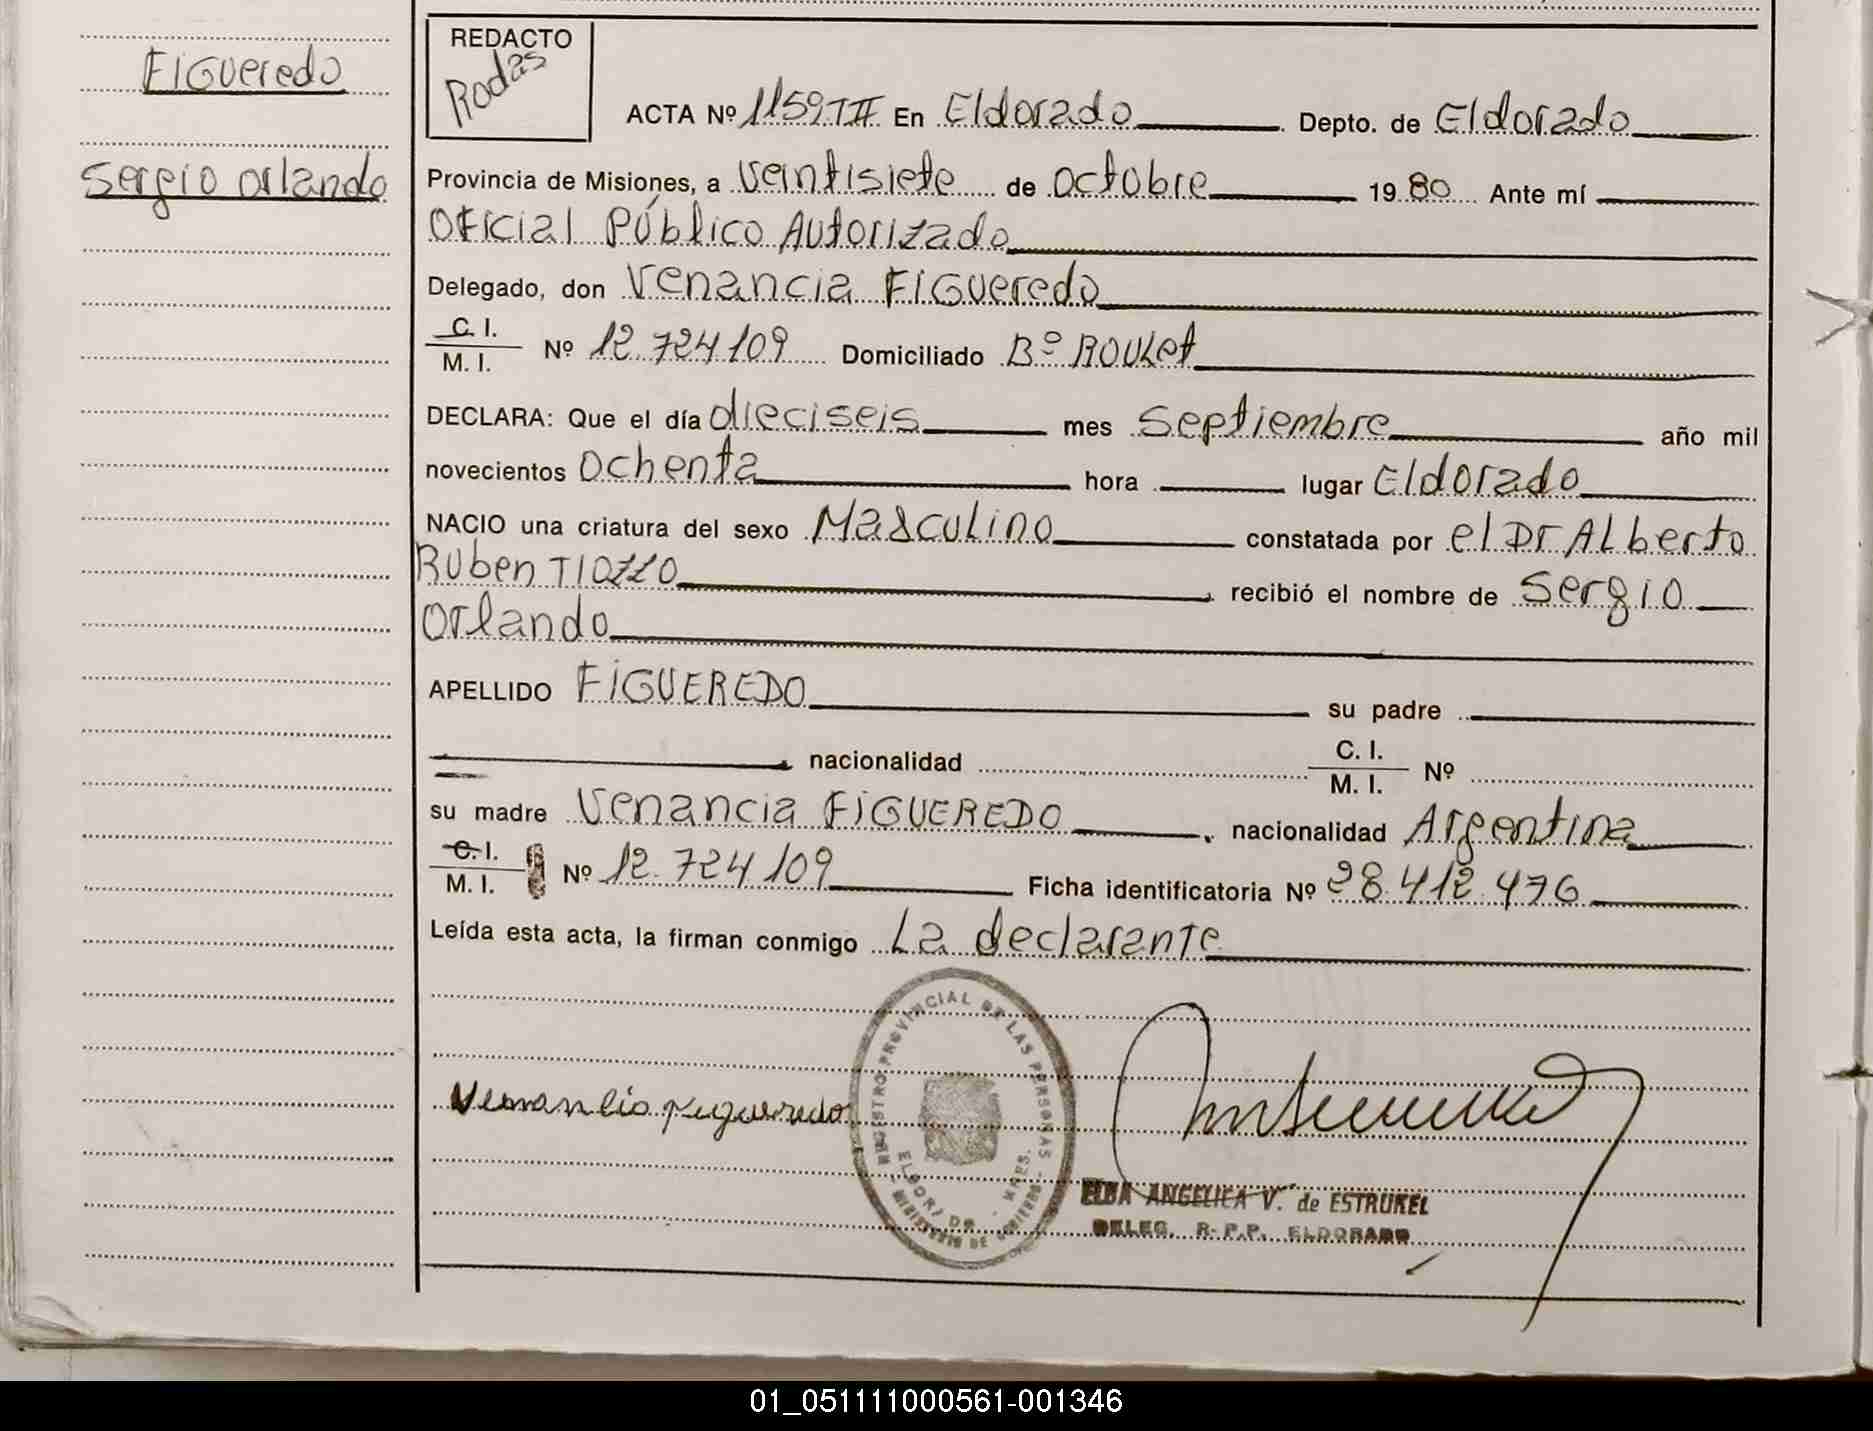 Figueredo
Sergio Orlando
REDACTO
Rodas
ACTA Nº 1159 TII En Eldorado Depto. de Eldorado
Provincia de Misiones, a veintisiete de octubre 1980 Ante mí
Oficial Público Autorizado
Delegado, don Venancia Figueredo
C. I.
M. I. Nº 12.724109 Domiciliado Bº ROULET
DECLARA: Que el día dieciseis mes septiembre año mil
novecientos ochenta hora lugar Eldorado
NACIO una criatura del sexo Masculino constatada por el Dr Alberto
Ruben TIOZZO recibió el nombre de Sergio
Orlando
APELLIDO FIGUEREDO su padre
nacionalidad C. I.
M. I. Nº
su madre Venancia FIGUEREDO nacionalidad Argentina
C. I.
M. I. Nº 12.724109 Ficha identificatoria Nº 28.412.476
Leída esta acta, la firman conmigo La declarante
REGISTRO PROVINCIAL DE LAS PERSONAS - MINISTERIO DE GOBIERNO -
ELDORADO - MNES.
Venancia Figueredo
ELBA ANGELICA V. de ESTRUKEL
DELEG. R.P.P. ELDORADO
01_051111000561-001346